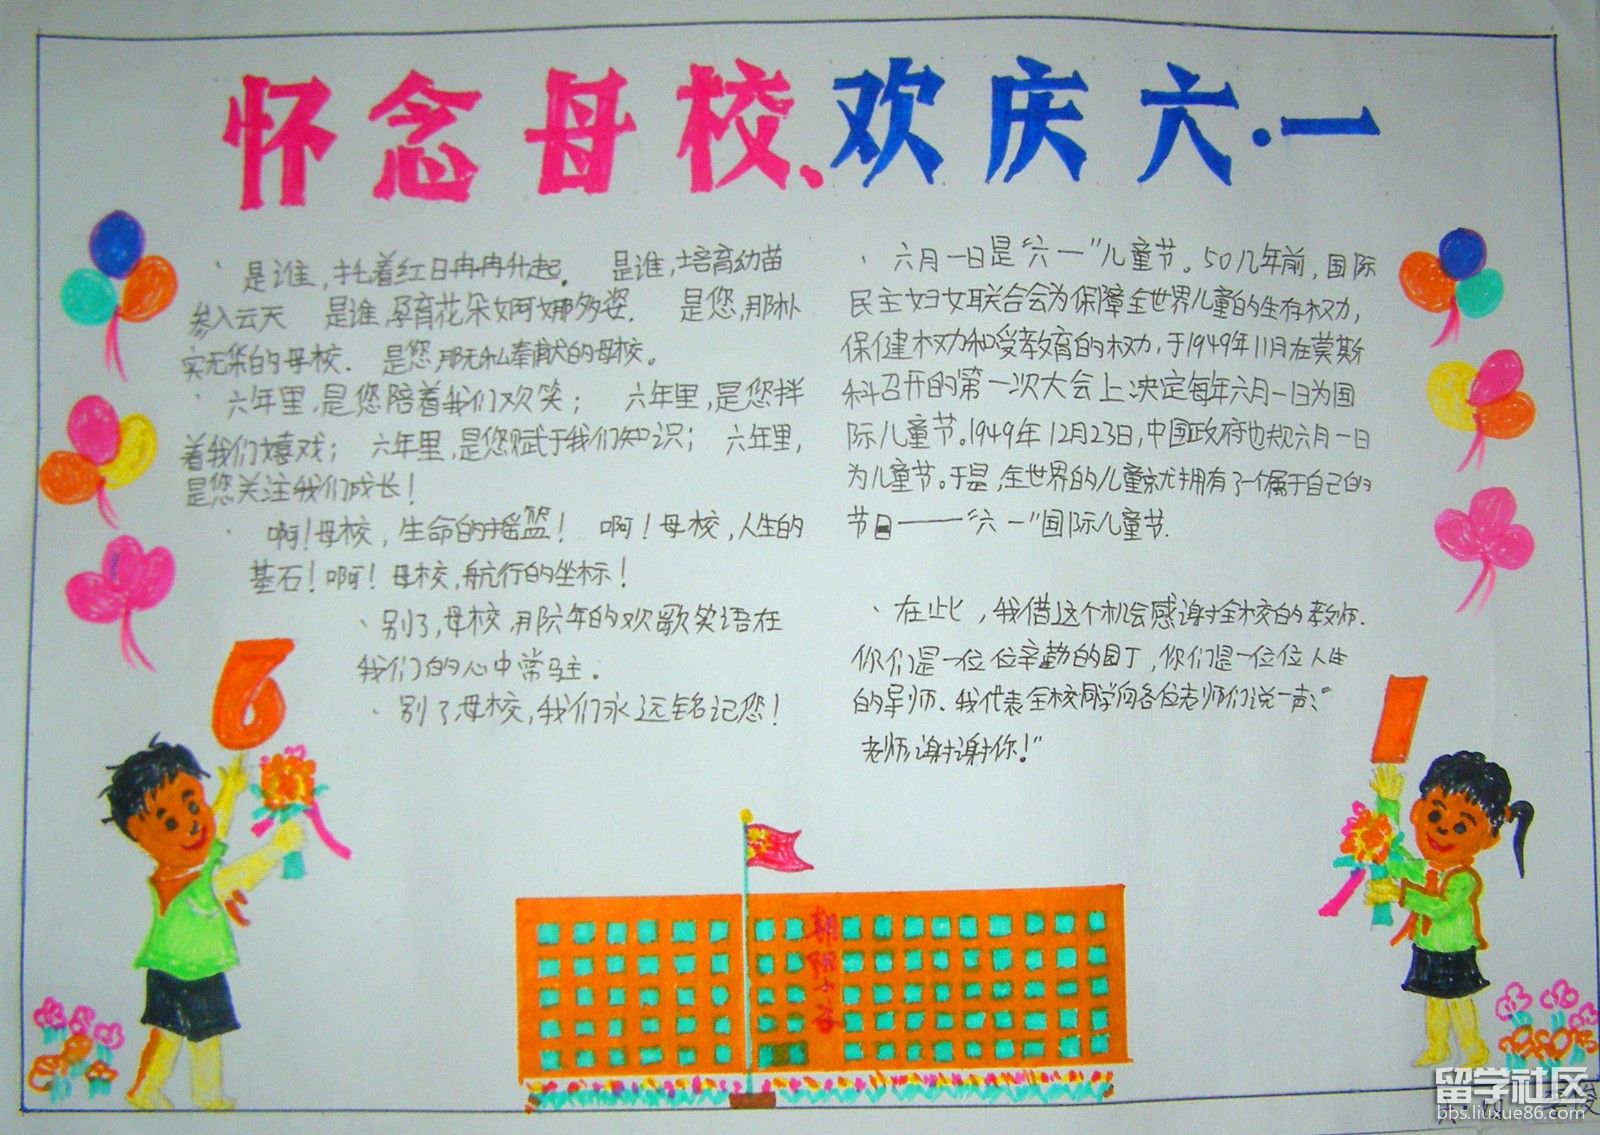 怀念母校、欢庆六·一
、是谁，托着红日冉冉升起。 是谁，培育幼苗
参入云天 是谁，孕育花朵婀娜多姿. 是您，那朴
实无华的母校. 是您那无私奉献的母校。
、六年里，是您陪着我们欢笑； 六年里，是您拌
着我们嬉戏； 六年里，是您赋于我们知识； 六年里，
是您关注我们成长！
、啊！母校，生命的摇篮！ 啊！母校，人生的
基石！啊！母校，航行的坐标！
、别了，母校，那六年的欢歌笑语在
我们的心中常驻.
、别了母校，我们永远铭记您！
、六月一日是“六一”儿童节。50几年前，国际
民主妇女联合会为保障全世界儿童的生存权力，
保健权力和受教育的权力，于1949年11月在莫斯
科召开的第一次大会上决定每年六月一日为国
际儿童节。1949年12月23日，中国政府也规六月一日
为儿童节。于是，全世界的儿童就拥有了一个属于自己的
节日——“六一”国际儿童节.
、在此，我借这个机会感谢全校的教师.
你们是一位位辛勤的园丁，你们是一位位人生
的导师、我代表全校同学向各位老师们说一声：“
老师谢谢你！”
6
1
朝阳小学
留学社区
bbs.liuxue86.com